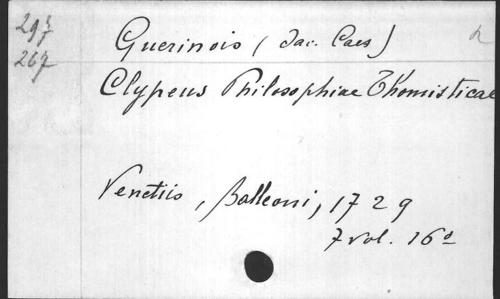 297
267
Guerinois (Jac. Caes)
Clypeus Philosophiae Thomisticae
Venetiis, Balleoni, 1729
7 vol. 16º